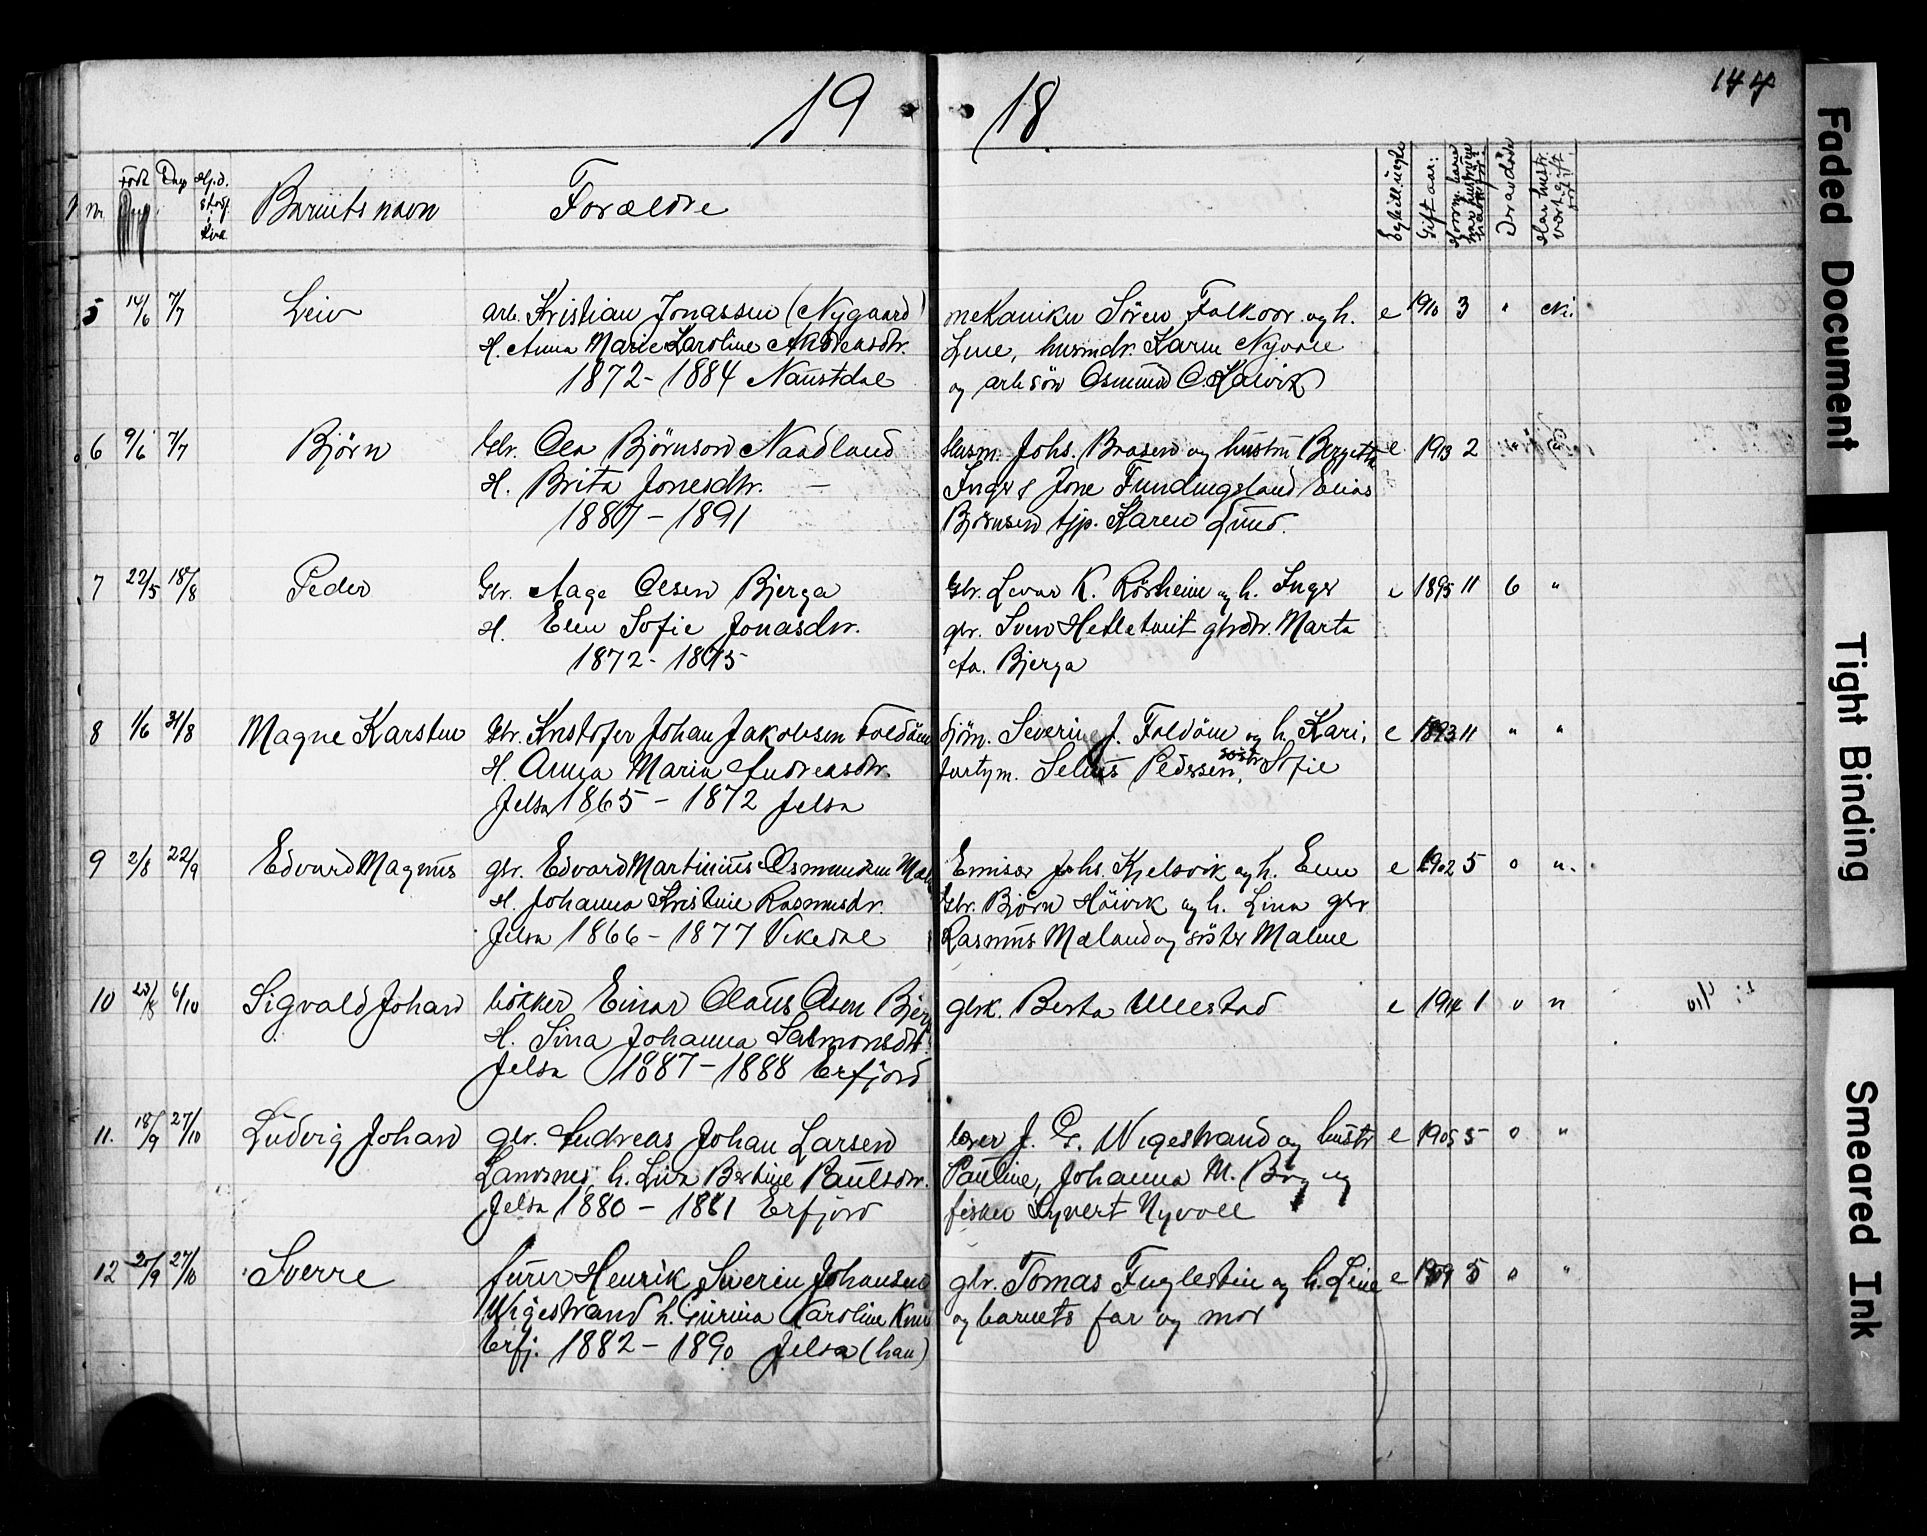 19 18.
144
Nr. Født Dåp Hj.d. Barnets navn Forældre Gift aar: Dødfødte
5 14/6 7/7 Leiv arb. Kristian Jonassen (Nygaard) mekaniker Sören Falkor og h. e 1910 3 " Nei
H. Anna Marie Karoline Andreasdtr. Line, husmdr. Karen Nyvoll
1872 - 1884 Naustdal og arb.sön Osmund C. Kalvik
6 9/6 7/7 Björn Gbr. Ola Björnson Naadland Husm. Johs. Brasen og hustru Bergitta e 1913 2
H. Brita Jonesdtr. — Inger & Jone Fundingsland Elias
1887 - 1891 Björnsen tjp. Karen Lund.
7 22/5 18/8 Peder Gbr. Aage Olsen Bjerga Gbr. Levar K. Rörheim og h. Inger e 1895 11 6 "
H. Elen Sofie Jonasdtr. gbr. Sven Hetletveit gbrdtr. Marta
1872 - 1875 Aa. Bjerga
8 1/6 31/8 Magne Karsten Gbr. Kristofer Johan Jakobsen Foldöen Sjöm. Severin J. Foldöen og h. Kari, e 1893 11 " "
H. Anna Maria Andreasdtr. fartym. Selius Pedersen, söster Sofie
Jelsa 1865 - 1872 Jelsa
9 2/8 22/9 Edvard Magnus gbr. Edvard Martinius Osmundsen Emisær Johs. Kjelsvik og h. Elen e 1902 5 0 n.
H. Johanna Kristine Rasmusdr. Gbr. Björn Höivik og h. Lina gbr
Jelsa 1866 - 1877 Vikedal Rasmus Mæland og söster Malene
10 23/8 6/10 Sigvald Johan bökker Einar Olaus Olsen Bjerga gbrk. Berta Ullestad e 1914 1 0 n
H. Sina Johanna Salmonsdtr.
Jelsa 1887 - 1888 Erfjord
11. 18/9 27/10 Ludvig Johan gbr. Andreas Johan Larsen lærer J. G. Wigestrand og hustr e 1905 5 0 "
Landsnes, h. Liva Bertine Paulsdtr. Pauline, Johanna M. Berg og
Jelsa 1880 - 1881 Erfjord fisker Syvert Nyvoll
12 20/9 27/10 Sverre furer Henrik Severin Johansen gbr. Tomas Fuglestein og h. Line e 1909 5 0 "
Wigestrand h. Gurina Karoline og barnets far og mor
Erfj. 1882 - 1890 Jelsa (han)
Faded Document
Tight Binding
Smeared Ink